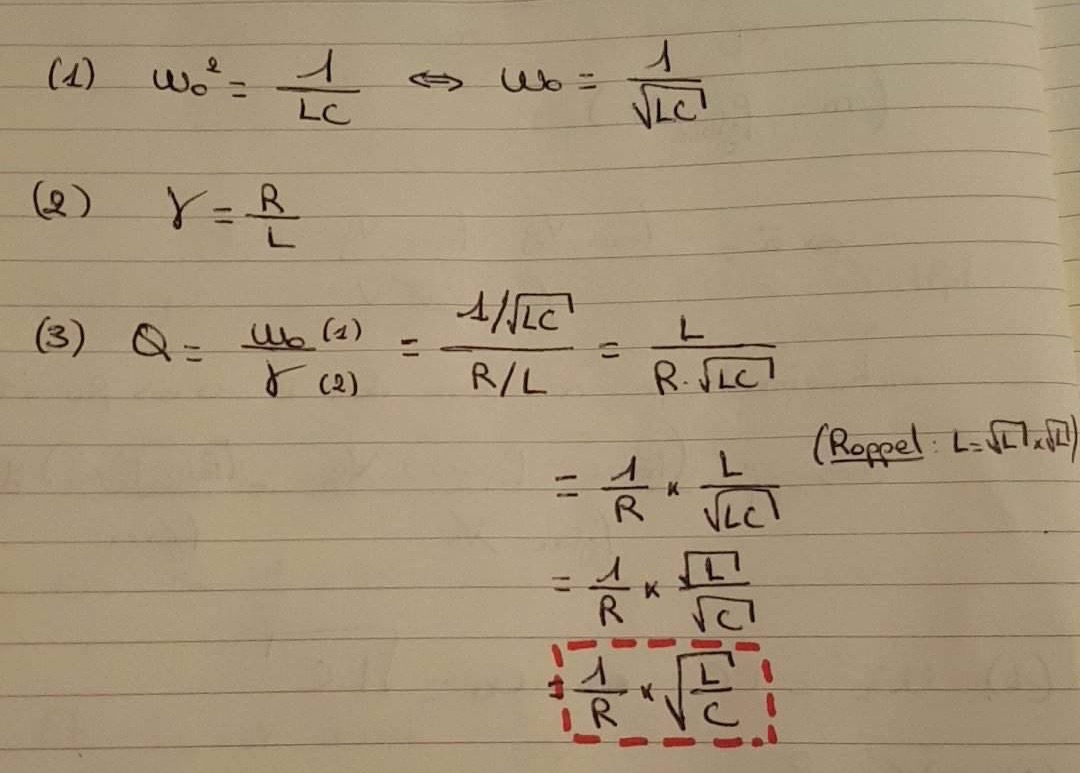 (1) ω₀² = 1/LC ⇔ ω₀ = 1/√LC
(2) γ = R/L
(3) Q = ω₀ (1)/γ (2) = (1/√LC)/(R/L) = L/(R·√LC)
(Rappel : L=√L×√L)
= 1/R × L/√LC
= 1/R × √L/√C
= 1/R × √(L/C)